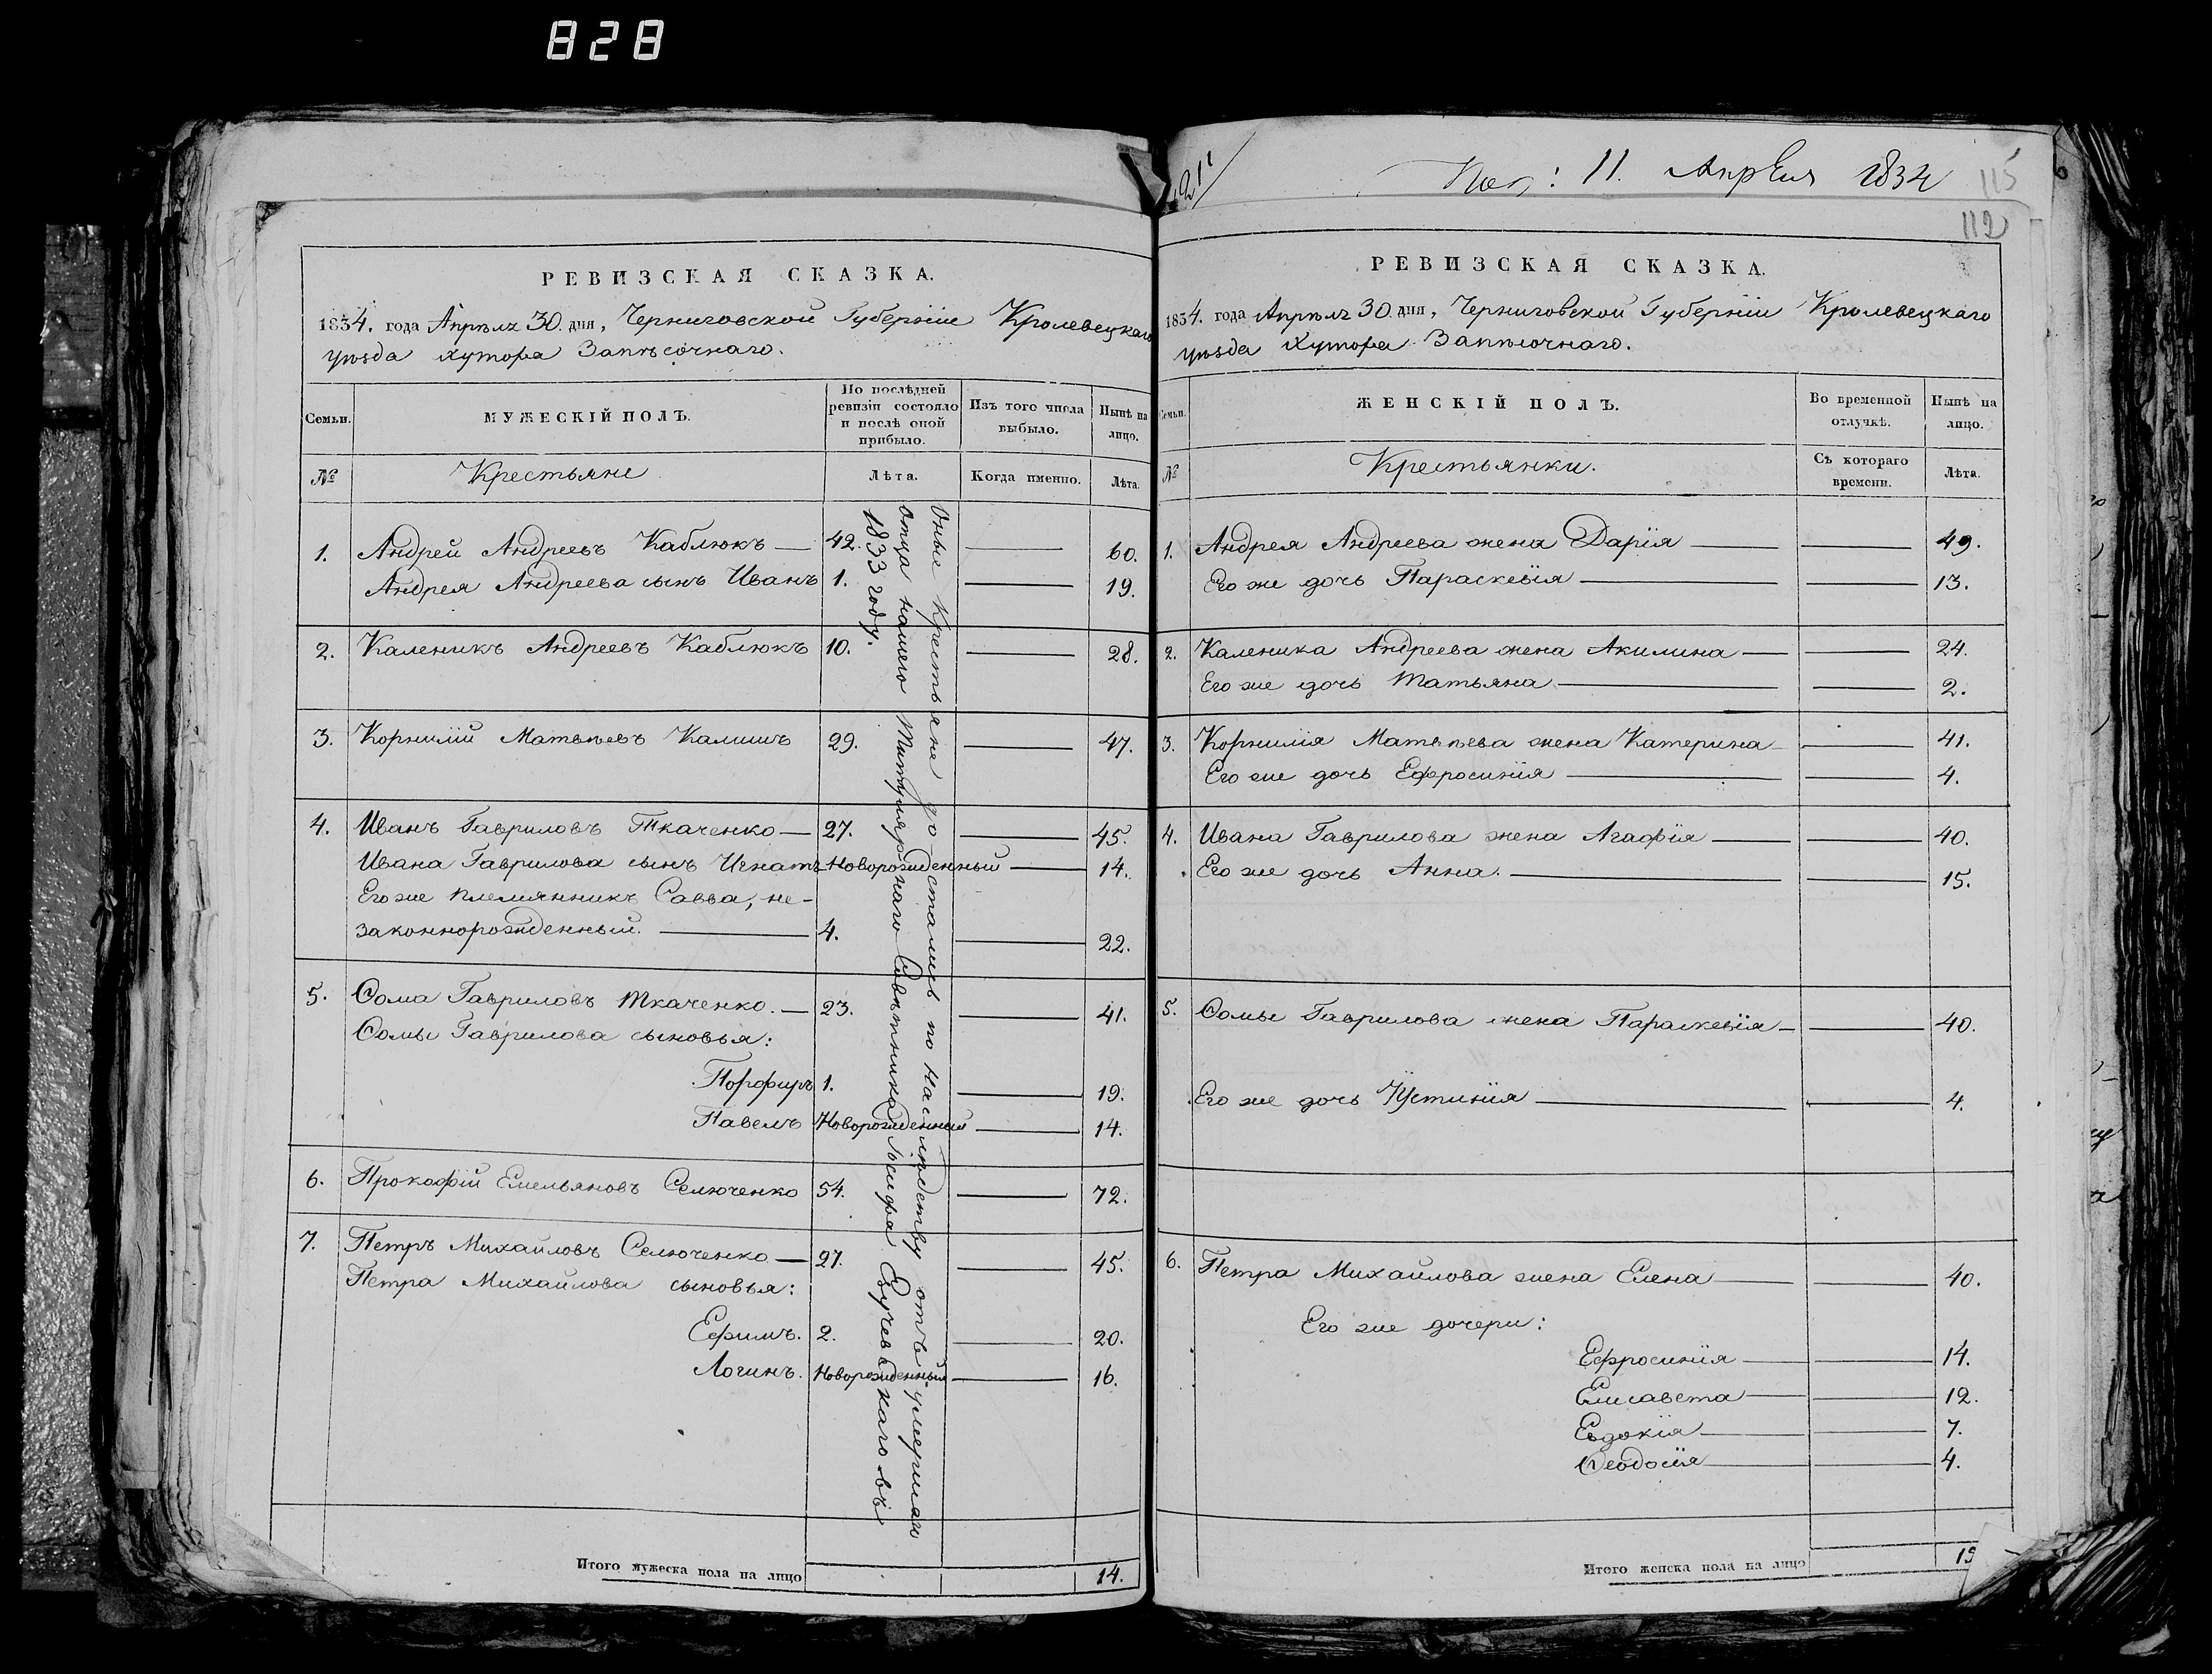 828
РЕВИЗСКАЯ СКАЗКА.
1834. года Апрѣля 30. дня, Черниговской Губерніи Кролевецкаго
уѣзда хутора Запѣсочнаго.
Семьи.
МУЖЕСКІЙ ПОЛЪ.
По послѣдней ревизіи состояло и послѣ оной прибыло.
Изъ того числа выбыло.
Нынѣ на лицо.
№
Крестьяне
Лѣта.
Когда именно.
Лѣта.
1. Андрей Андреевъ Каблюкъ — 42. — 60.
Андрея Андреева сынъ Иванъ 1. — 19.
2. Каленикъ Андреевъ Каблюкъ 10. — 28.
3. Корнилій Матвѣевъ Калишъ 29. — 47.
4. Иванъ Гавриловъ Ткаченко — 27. — 45.
Ивана Гаврилова сынъ Игнатъ Новорожденный — 14.
Его же племянникъ Савва, не-
законнорожденный. — 4. — 22.
5. Ѳома Гавриловъ Ткаченко. — 23. — 41.
Ѳомы Гаврилова сыновья:
Порфиръ 1. — 19.
Павелъ Новорожденный — 14.
6. Прокофій Емельяновъ Селюченко 54. — 72.
7. Петръ Михайловъ Селюченко — 27. — 45.
Петра Михайлова сыновья:
Ефимъ. 2. — 20.
Логинъ. Новорожденный — 16.
Оные крестьяне достались по наслѣдству отъ умершаго
отца нашего Титулярнаго Совѣтника въ
1833 году.
Итого мужеска пола на лицо 14.
21
11. Апрѣля 1834
115
112
РЕВИЗСКАЯ СКАЗКА.
1834. года Апрѣля 30. дня, Черниговской Губерніи Кролевецкаго
уѣзда Хутора Запѣсочнаго.
Семьи.
ЖЕНСКІЙ ПОЛЪ.
Во временной отлучкѣ.
Нынѣ на лицо.
№
Крестьянки.
Съ котораго времени.
Лѣта.
1. Андрея Андреева жена Дарія — 49.
Его же дочь Параскевія — 13.
2. Каленика Андреева жена Акилина — 24.
Его же дочь Татьяна — 2.
3. Корнилія Матвѣева жена Катерина — 41.
Его же дочь Ефросинія — 4.
4. Ивана Гаврилова жена Агафія — 40.
Его же дочь Анна. — 15.
5. Ѳомы Гаврилова жена Параскевія — 40.
Его же дочь Устинія — 4.
6. Петра Михайлова жена Елена — 40.
Его же дочери:
Ефросинія — 14.
Елисавета — 12.
Евдокія — 7.
Ѳеодосія — 4.
Итого женска пола на лицо 15